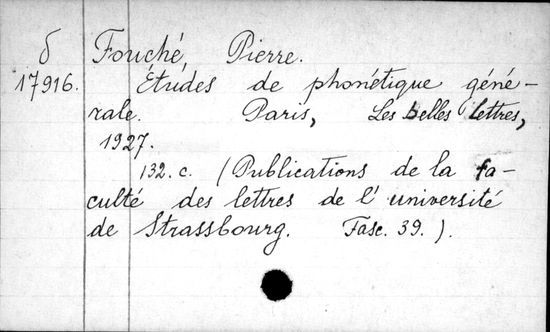 δ Fouché, Pierre.
17916. Études de phonétique géné-
rale. Paris, Les belles lettres,
1927.
132. c. (Publications de la fa-
culté des lettres de l'université
de Strassbourg. Fasc. 39.).